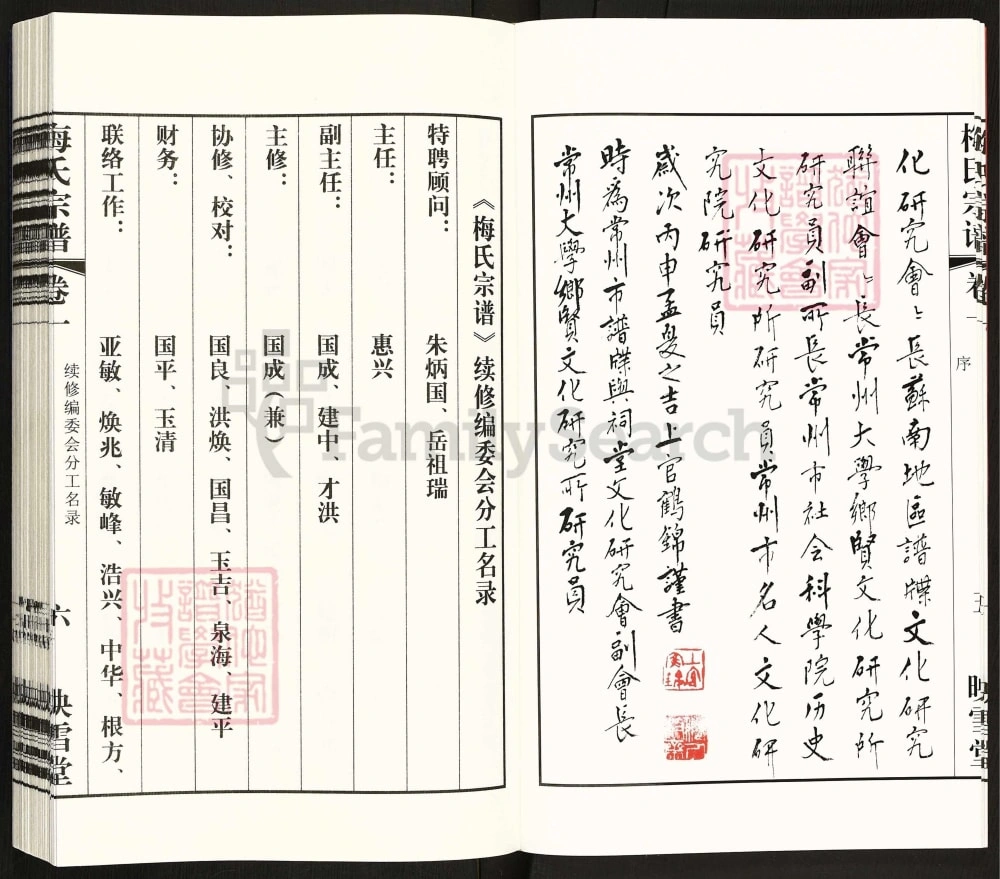 梅氏宗谱 卷一
序
五
映雪堂
化研究會會長蘇南地區譜牒文化研究
聯誼會會長常州大學鄉賢文化研究所
研究員副所長常州市社会科學院历史
文化研究所研究員常州市名人文化研
究院研究員
歲次丙申孟夏之吉上官鶴錦謹書
時為常州市譜牒與祠堂文化研究會副會長
常州大學鄉賢文化研究所研究員
《梅氏宗谱》续修编委会分工名录
特聘顾问： 朱炳国、岳祖瑞
主任： 惠兴
副主任： 国成、建中、才洪
主修： 国成（兼）
协修、校对： 国良、洪焕、国昌、玉吉、泉海、建平
财务： 国平、玉清
联络工作： 亚敏、焕兆、敏峰、浩兴、中华、根方、
梅氏宗谱 卷一
续修编委会分工名录
六
映雪堂
FamilySearch